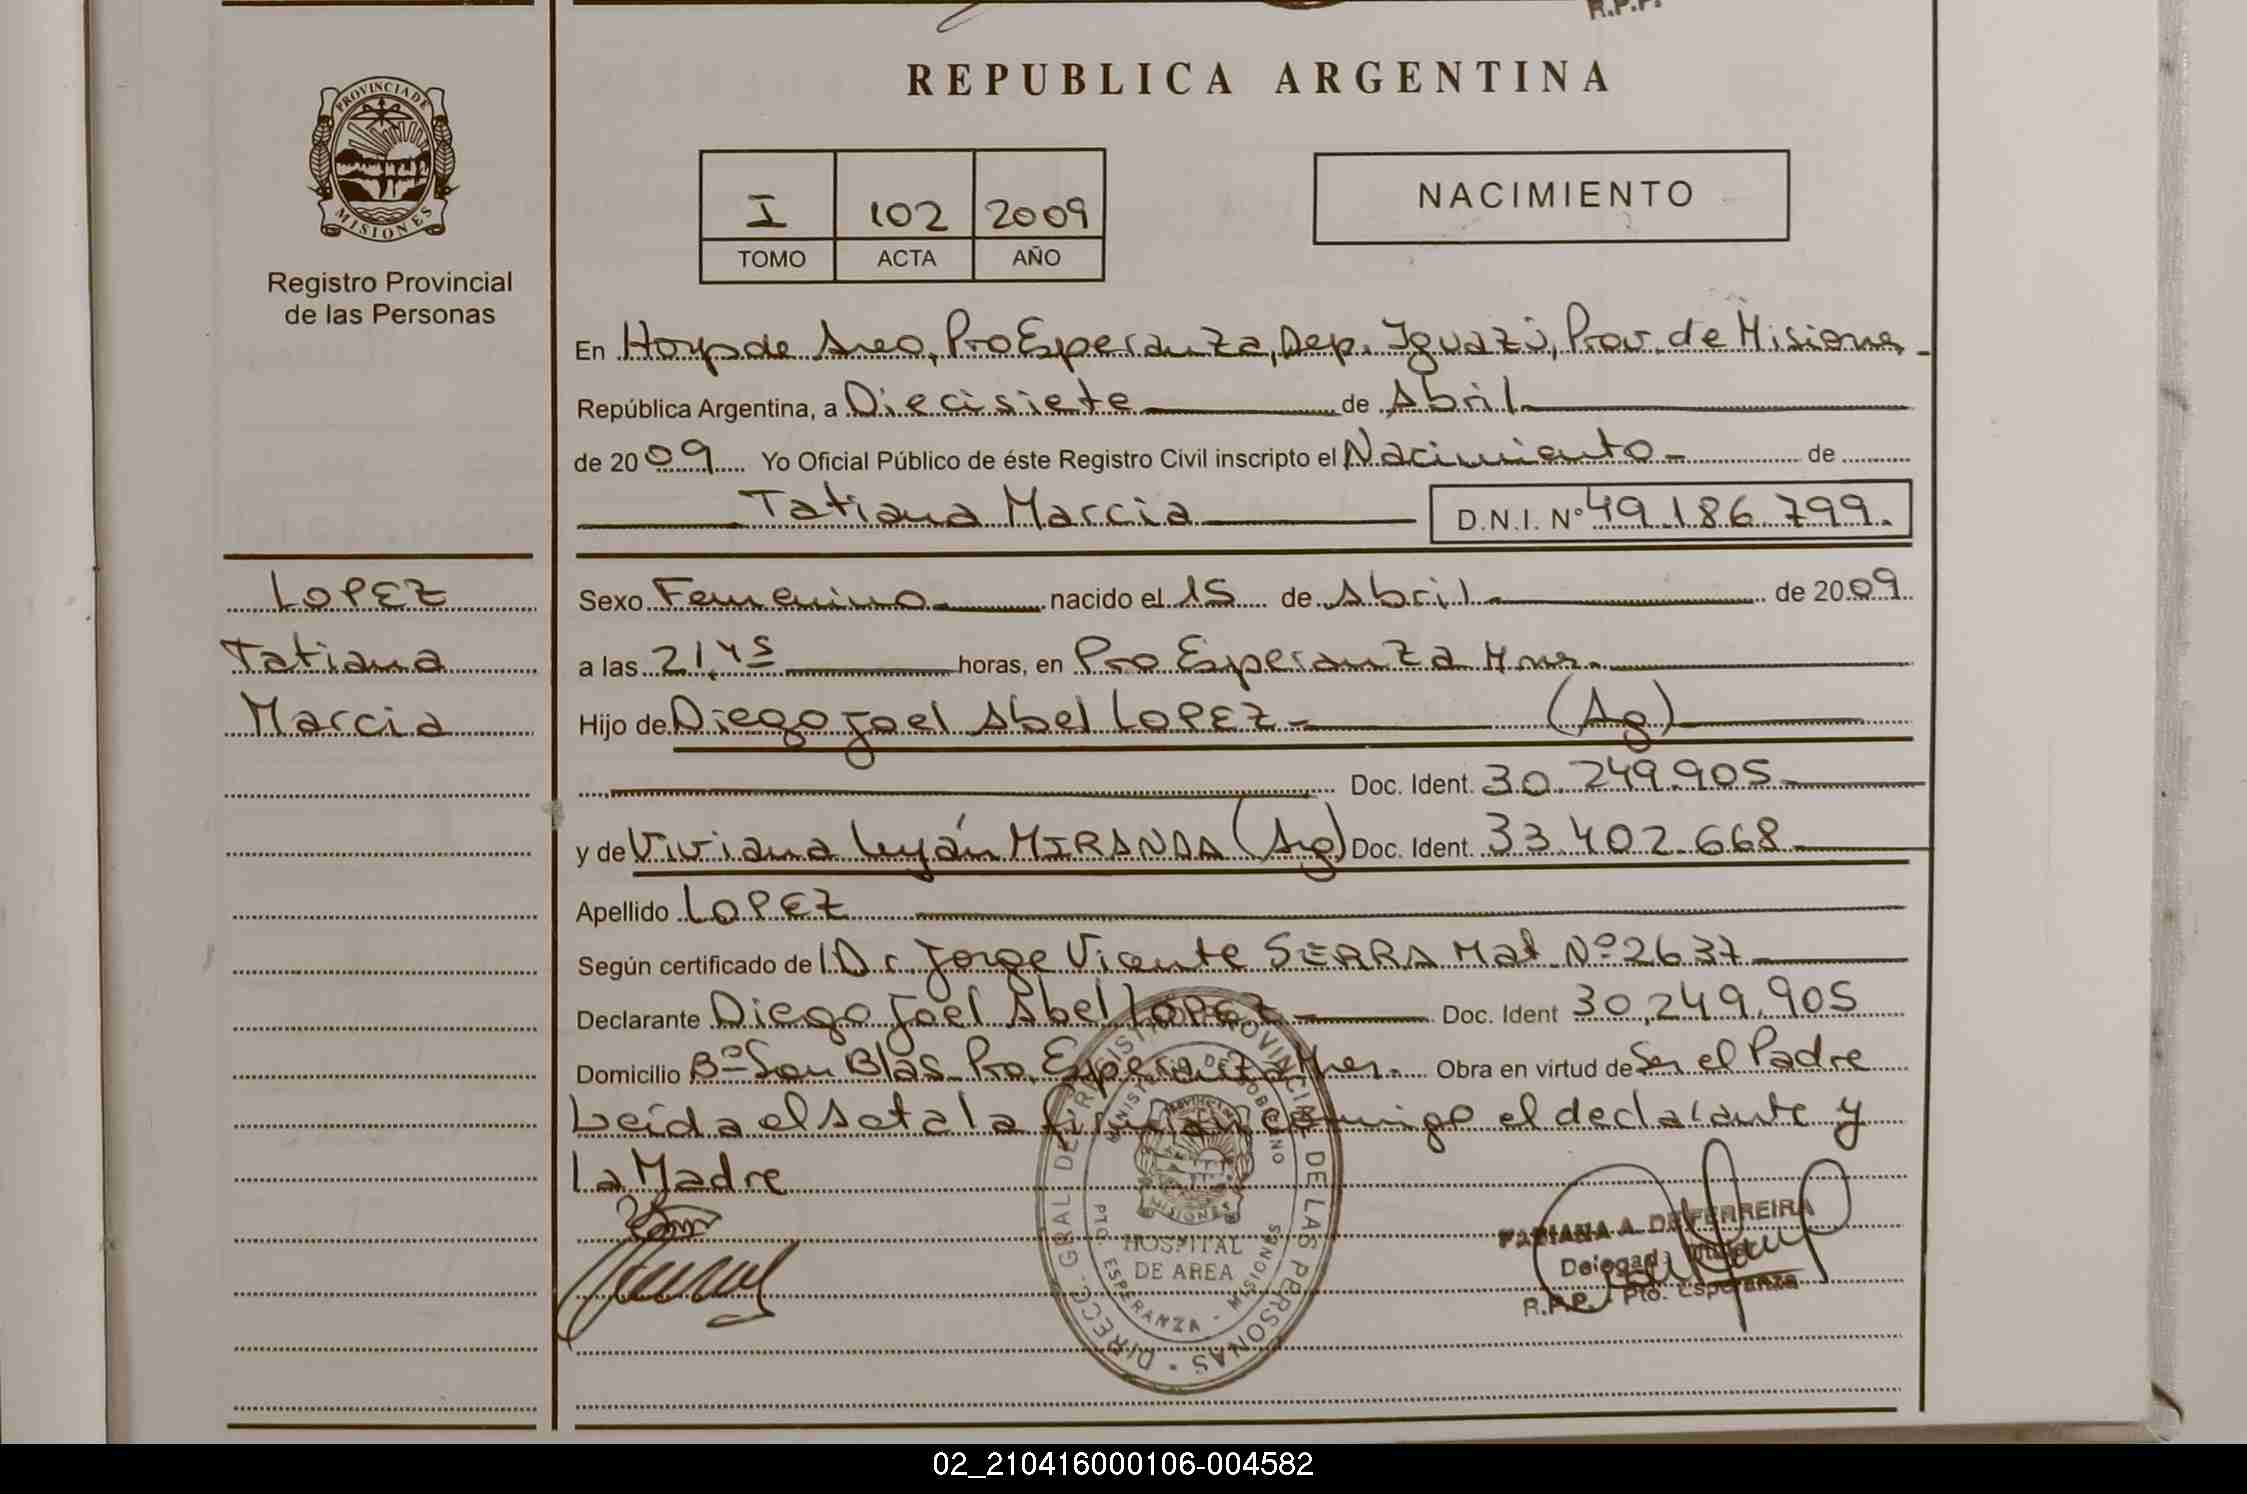 R.P.P.
REPUBLICA ARGENTINA
PROVINCIA DE
MISIONES
Registro Provincial
de las Personas
I 102 2009
TOMO ACTA AÑO
NACIMIENTO
En Hosp de Area, Pto Esperanza, Dep. Iguazú, Prov. de Misiones
República Argentina, a Diecisiete de Abril
de 2009 Yo Oficial Público de éste Registro Civil inscripto el Nacimiento de
Tatiana Marcia D.N.I. N° 49.186.799.
LOPEZ
Tatiana
Marcia
Sexo Femenino nacido el 15 de Abril de 2009
a las 21,45 horas, en Pto Esperanza Mnes.
Hijo de Diego Joel Abel LOPEZ (Ag)
Doc. Ident. 30.249.905
y de Viviana MIRANDA (Ag) Doc. Ident. 33.402.668
Apellido LOPEZ
Según certificado de Dr. Jorge Vicente SERRA Mat Nº 2637
Declarante Diego Joel Abel LOPEZ Doc. Ident 30,249,905
Domicilio Bº San Blas Pto. Esperanza Mnes. Obra en virtud de Ser el Padre
Leída el acta la firman conmigo el declarante y
La Madre
DIRECC. GRAL DE REGISTRO PROVINCIAL DE LAS PERSONAS
MINISTERIO DE GOBIERNO
PROVINCIA
MISIONES
HOSPITAL
DE AREA
PTO. ESPERANZA - MISIONES
FABIANA A. DE FERREIRA
Delegada
R.P.P. - Pto. Esperanza
02_210416000106-004582